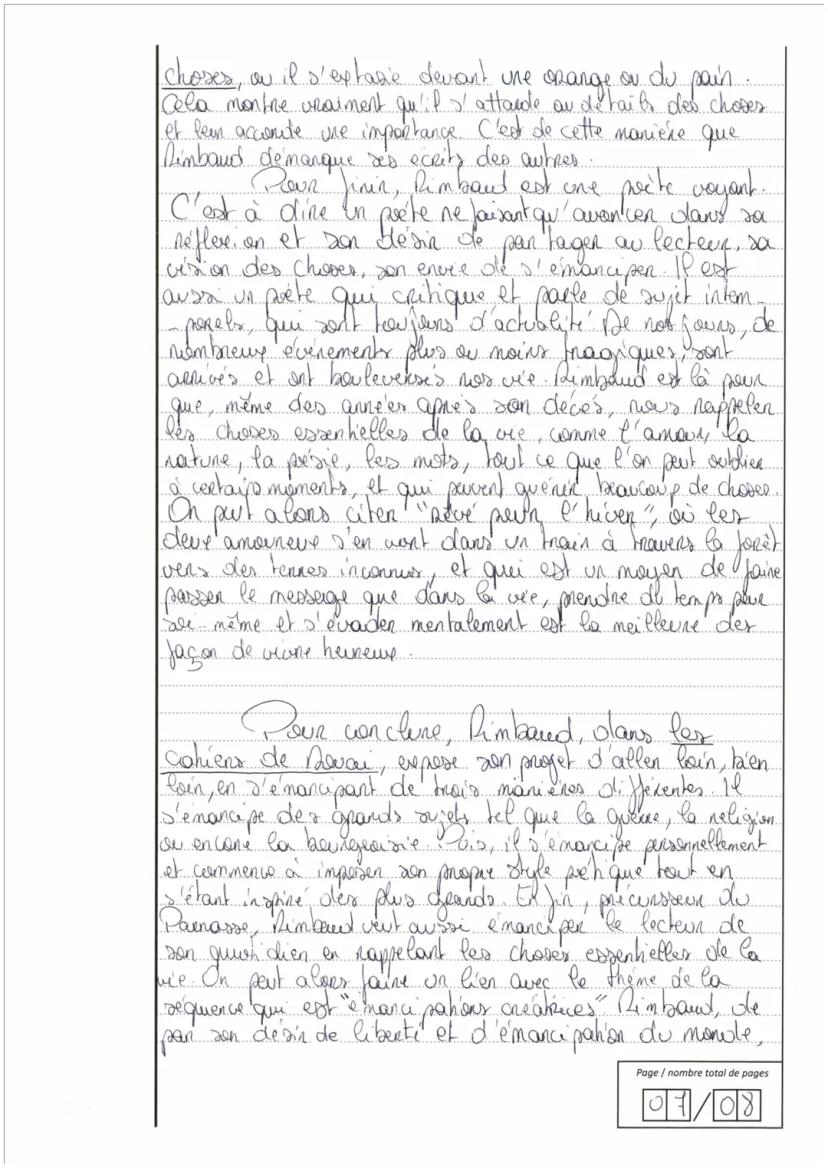 choses, ou il s'extasie devant une orange ou du pain.
Cela montre vraiment qu'il s'attarde au détails des choses
et leur accorde une importance. C'est de cette manière que
Rimbaud démarque ses ecrits des autres.
Pour finir, Rimbaud est une poète voyant.
C'est à dire un poète ne faisant qu'avancer dans sa
réflexion et son désir de partager au lecteur, sa
vision des choses, son envie de s'émanciper. Il est
aussi un poète qui critique et parle de sujet intem-
-porels, qui sont toujours d'actualité. De nos jours, de
nombreux évènements plus ou moins tragiques, sont
arrivés et ont bouleversés nos vie. Rimbaud est là pour
que, même des années après son décès, nous rappeler
les choses essentielles de la vie, comme l'amour, la
nature, la poésie, les mots, tout ce que l'on peut oublier
à certains moments, et qui peuvent guérir beaucoup de choses.
On peut alors citer "Rêvé pour l'hiver", où les
deux amoureux s'en vont dans un train à travers la forêt
vers des terres inconnus, et qui est un moyen de faire
passer le message que dans la vie, prendre du temps pour
soi-même et s'évader mentalement est la meilleure des
façon de vivre heureux.
Pour conclure, Rimbaud, dans les
Cahiers de Douai, expose son projet d'aller loin, bien
loin, en s'émancipant de trois manières différentes. Il
s'émancipe des grands sujets tel que la guerre, la religion
ou encore la bourgeoisie. Puis, il s'émancipe personnellement
et commence à imposer son propre style poétique tout en
s'étant inspiré des plus grands. Enfin, précursseur du
Parnasse, Rimbaud veut aussi émanciper le lecteur de
son quotidien en rappelant les choses essentielles de la
vie. On peut alors faire un lien avec le thème de la
séquence qui est "émancipations créatrices". Rimbaud, de
par son désir de liberté et d'émancipation du monde,
Page / nombre total de pages
07/08